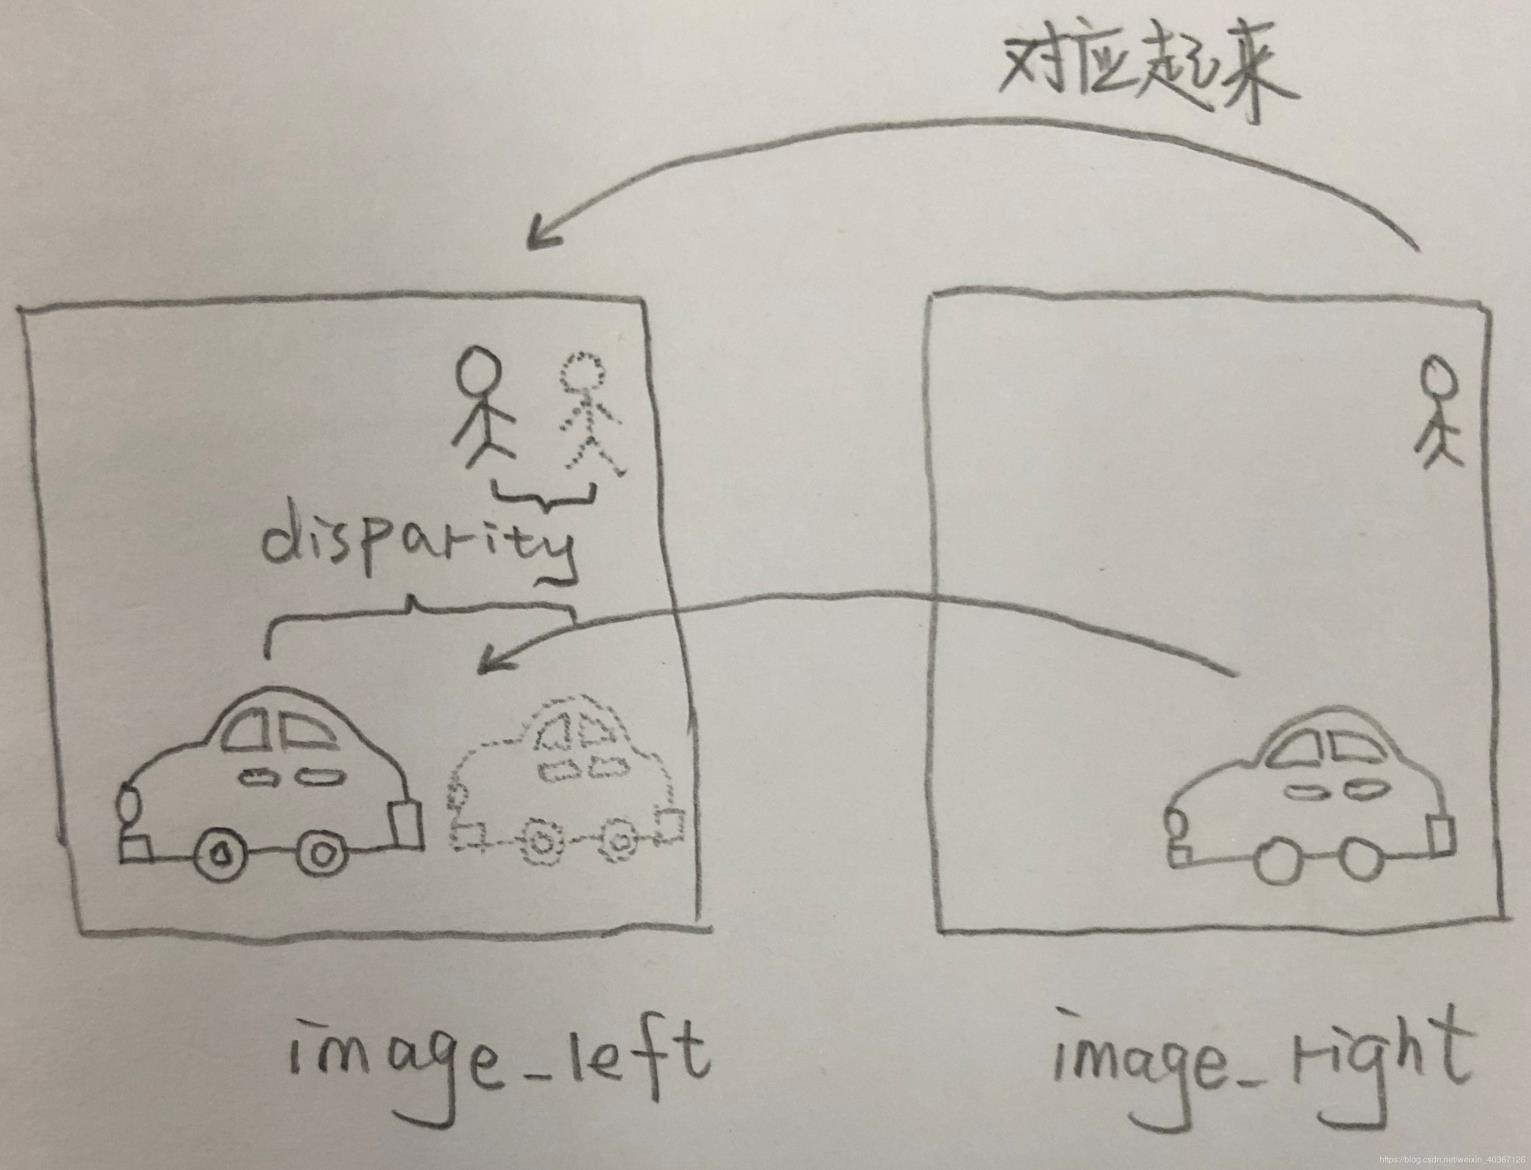 对应起来
disparity
image_left
image_right
https://blog.csdn.net/weixin_40367126